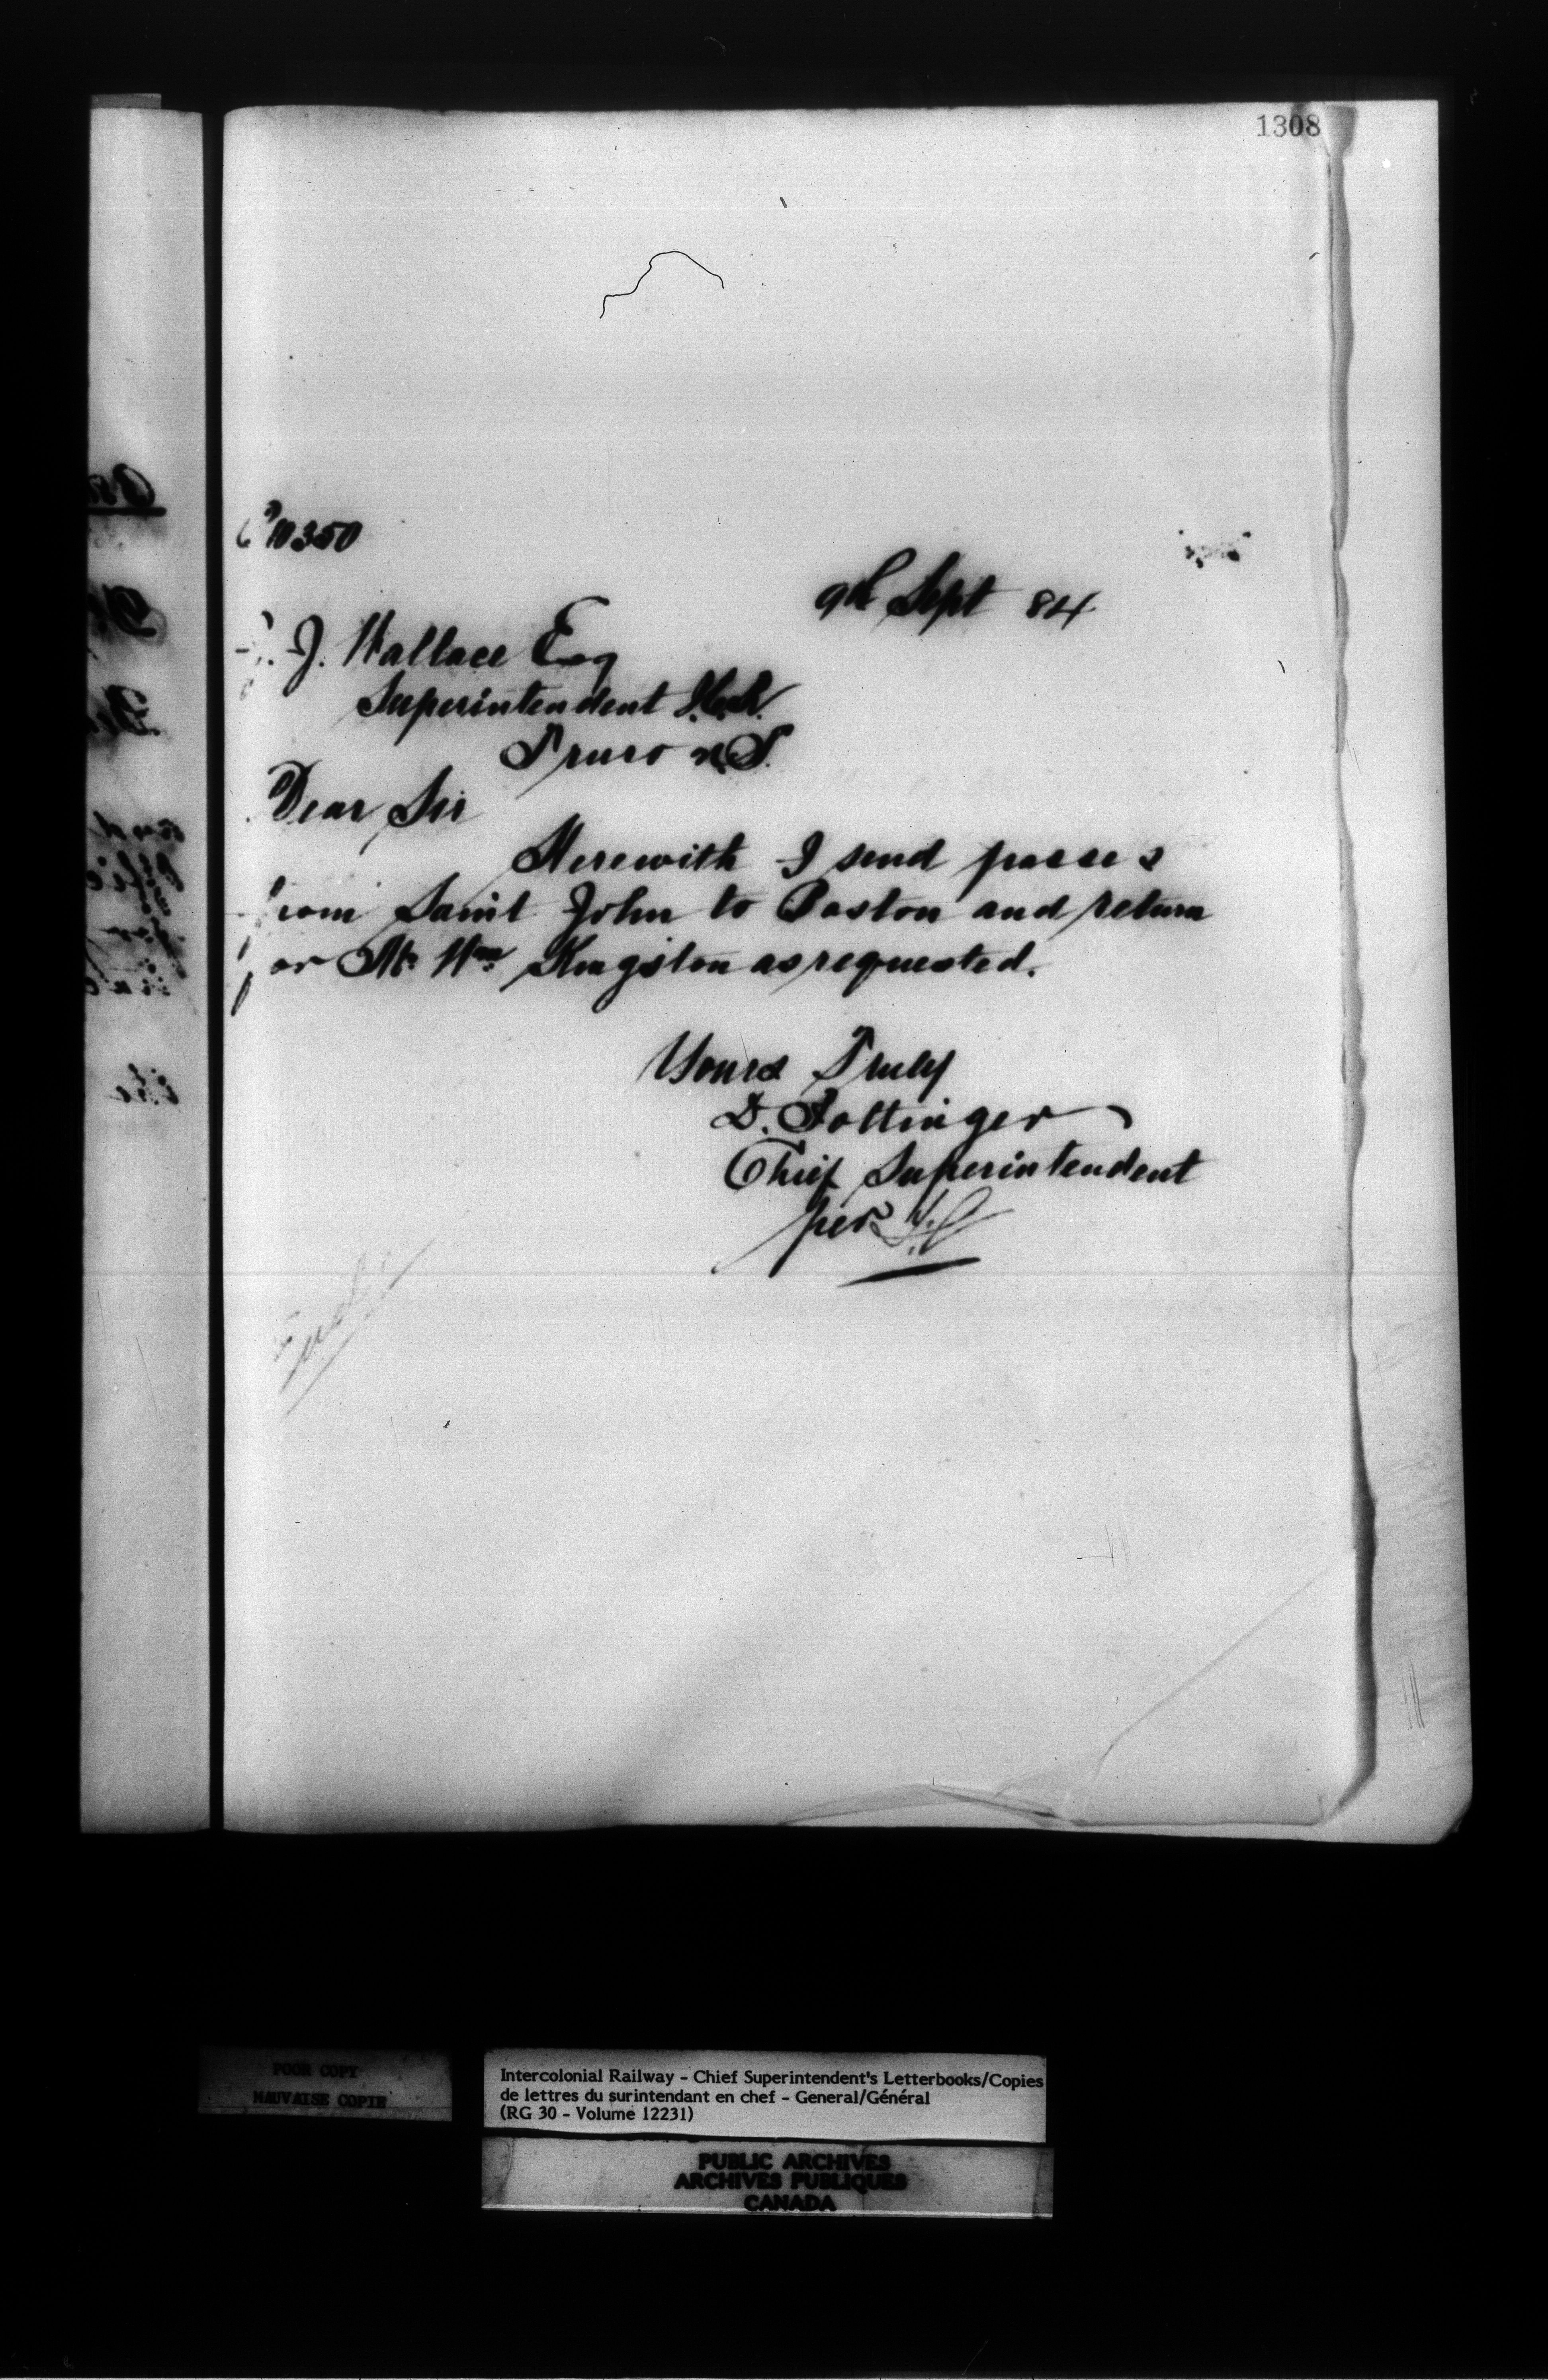 1308
10350
9th Sept 84
J. Wallace Esq
Superintendent I.C.R.
Truro N.S.
Dear Sir
Herewith I send passes
from Saint John to Boston and return
for Mr. Wm. Kingston as requested.
Yours Truly
D. Pottinger
Chief Superintendent
per
POOR COPY
MAUVAISE COPIE
Intercolonial Railway - Chief Superintendent's Letterbooks/Copies
de lettres du surintendant en chef - General/Général
(RG 30 - Volume 12231)
PUBLIC ARCHIVES
ARCHIVES PUBLIQUES
CANADA